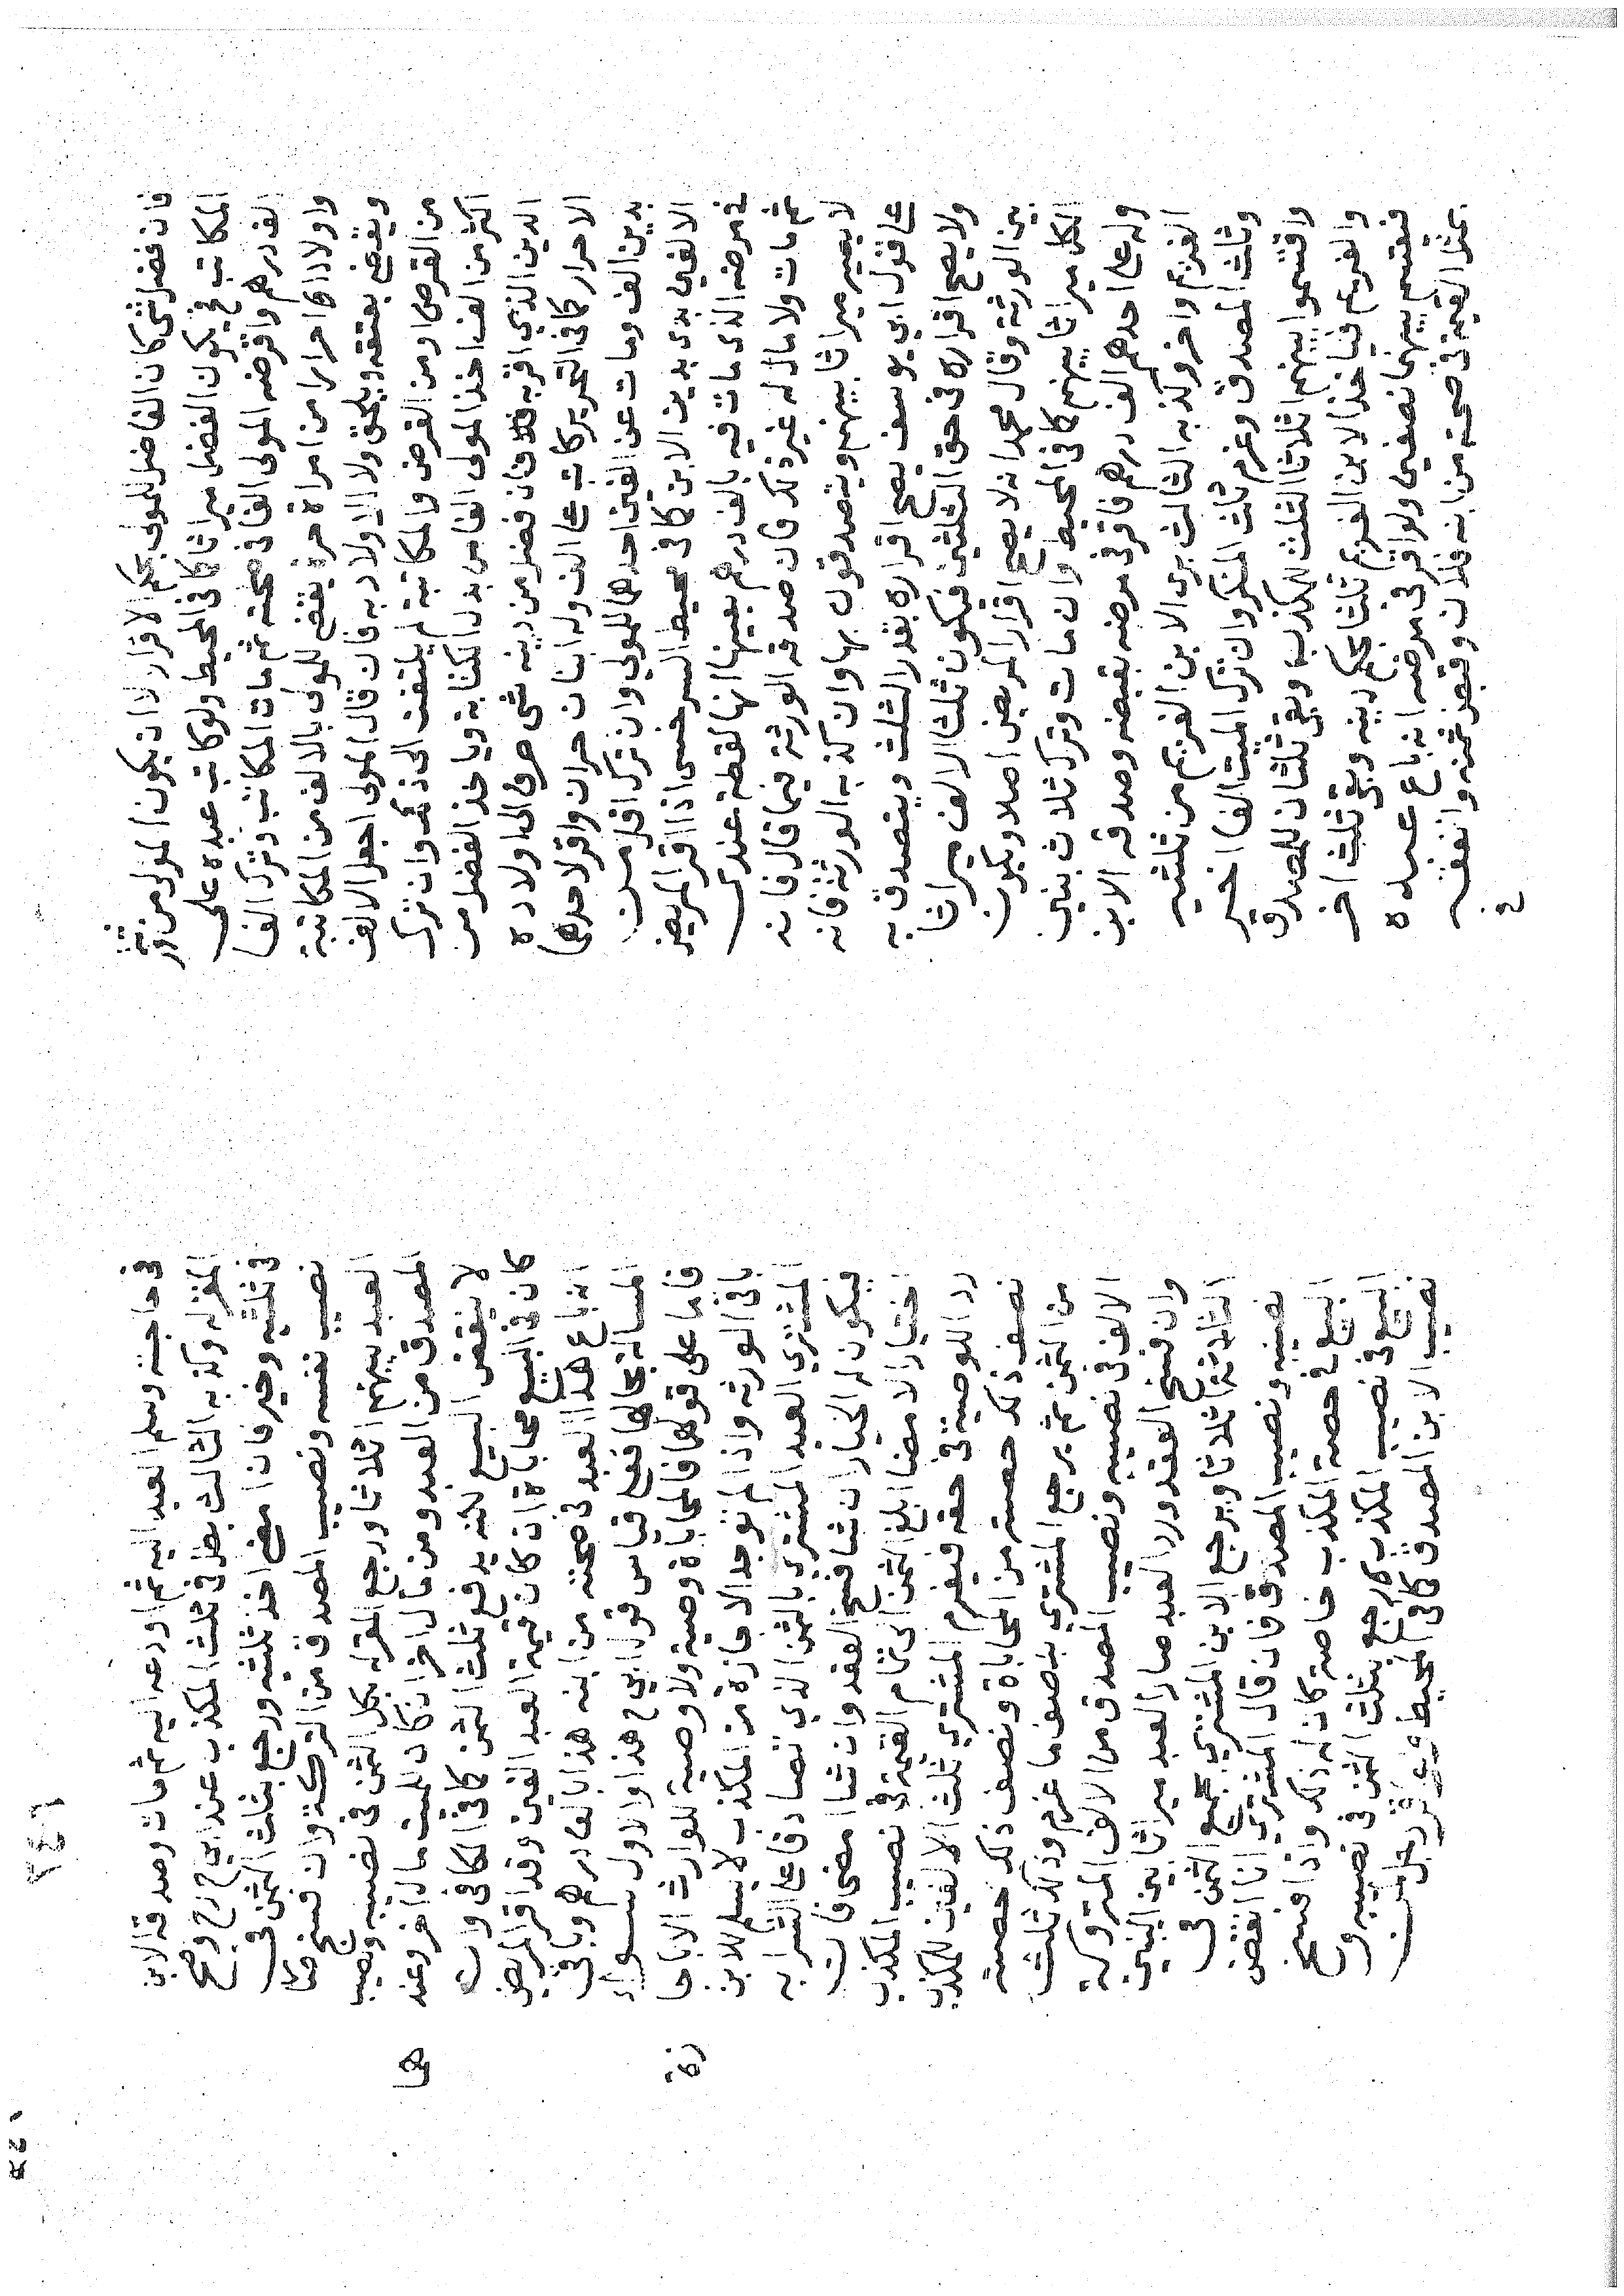 فان فضل شى كان الفاضل للمولى بحكم الاقرار لان يكون المولى من ورثة
المكاتب فيكون الفضل ميراثا كافى المحيط ولو كاتب عبده على
الف درهم واقرضه المولى الفا فى صحته ثم مات المكاتب وترك الفا
واولادا احرارا من امراة حرة يقضى للمولى بالالف من المكاتبة
ويقضى بعتقه ويلحق ولا الاولاد به فان قال المولى اجعل الالف
من القرض او من القرض والمكاتبة لم يلتفت الى ذلك وان ترك
اكثر من الف اخذ المولى الفا من بدل الكتابة وياخذ الفضل من
الدين الذي اقر به فان فضل من دينه شى صرف الى اولاده
الاحرار كافى التحرير كاتب على الف وله ابنان حران واقر لاحدهما
بدين الف ومات عن الفين احدهما للمولى وان ترك اقل من
الالفين بدى بدين الابن كافى محيط السرخسى اذا اقر المريض
فى مرضه الذى مات فيه بالف درهم بعينها انها لقطة عندى
ثم مات ولا مال له غير ذلك فان صدقه الورثة فيما قال فانه
لا يصير ميراثا بينهم ويتصدقون بها وان كذبه الورثة فانه
على قول ابي يوسف يصح اقراره بقدر الثلث ويتصدق به
ولا يصح اقراره فى حق الثلثين فيكون ثلثا الالف ميراثا
بين الورثة وقال محمد انه لا يصح اقرار المريض اصلا ويكون
الكل ميراثا بينهم كافى المحيط وان مات وترك ثلاث بنين
وله على احدهم الف درهم فاقر فى مرضه بقبضه وصدقه الابن
الغريم واخر وكذبه الثالث برى الابن الغريم من ثلثيه
وثلث المصدق وغرم ثلث المنكر وان ترك الميت الفا اخير
واقتسموا بينهم اثلاثا الثلث للمكذب وبقى ثلثان للمصدق
والغريم فياخذ الابن الغريم ثلثا بحكم دينه وبقى ثلث اخر
فيقسم بينهما نصفين ولو اقر فى مرضه انه باع عبده
بمثل القيمة فى صحته من ابنه فلان وقبض ثمنه وانفقه
فى
فى حاجته وسلم العبد اليه ثم اودعه اليه ثم مات وصدقه الابن
المقر له وكذبه الثالث بطل فى ثلث المكذب عند ابي ح رح وصح
فى ثلثيه وخير فان امضى اخذ ثلثيه ورجع بثلث الثمن فى
نصيب نفسه ونصيب المصدق من التركة وان فسخ فكا
العبد بينهم اثلاثا ورجع المقر له بكل الثمن فى نصيبه ونصيب
المصدق من العبد ومن مال اخر ان كان للميت مال اخر وعند
هما
لا ينقض البيع لكنه يدفع ثلث الثمن كافى الكافى وان
كان فى البيع محاباة ان كان قيمة العبد الفين وقد اقر المريض
انه باع هذا العبد فى صحته من ابنه هذا بالف درهم وباقى
المسالة بحالها فعلى قياس قول ابي ح هذا والاول سواء
فاما على قولهما فالمحاباة وصية ولا وصية للوارث الا باجا
زة
باقى الورثة واذا لم توجد الاجازة من المكذب لا يسلم للابن
المشترى العبد المشترى بالثمن الذي تصادقا على الشرا به
فيكون له الخيار ان شا فسخ العقد وان شا امضى فان
اختار الامضا ابلغ الثمن الى تمام القيمة فى نصيب المكذب
رد اللوصية فى حقه فيغرم المشترى ثلث الالفين للمكذب
نصف ذلك حصته من المحاباة ونصف ذلك حصته
من الثمن ثم يرجع المشترى بنصف ما غرم وذلك ثلث
الالف فى نصيبه ونصيب المصدق من الالف المتروكة
وان فسخ العقد ورد العبد صار العبد ميراثا بين البنين
الثلاثة اثلاثا ويرجع الابن المشترى بجميع الثمن فى
نصيبه ونصيب المصدق فان قال المشترى انا انقض
البيع فى حصة المكذب خاصة كان له ذلك واذا فسخ
البيع فى نصيب المكذب يرجع بثلث الثمن فى نصيبه و
نصيب الابن المصدق كافى المحيط رجل
٢٤١